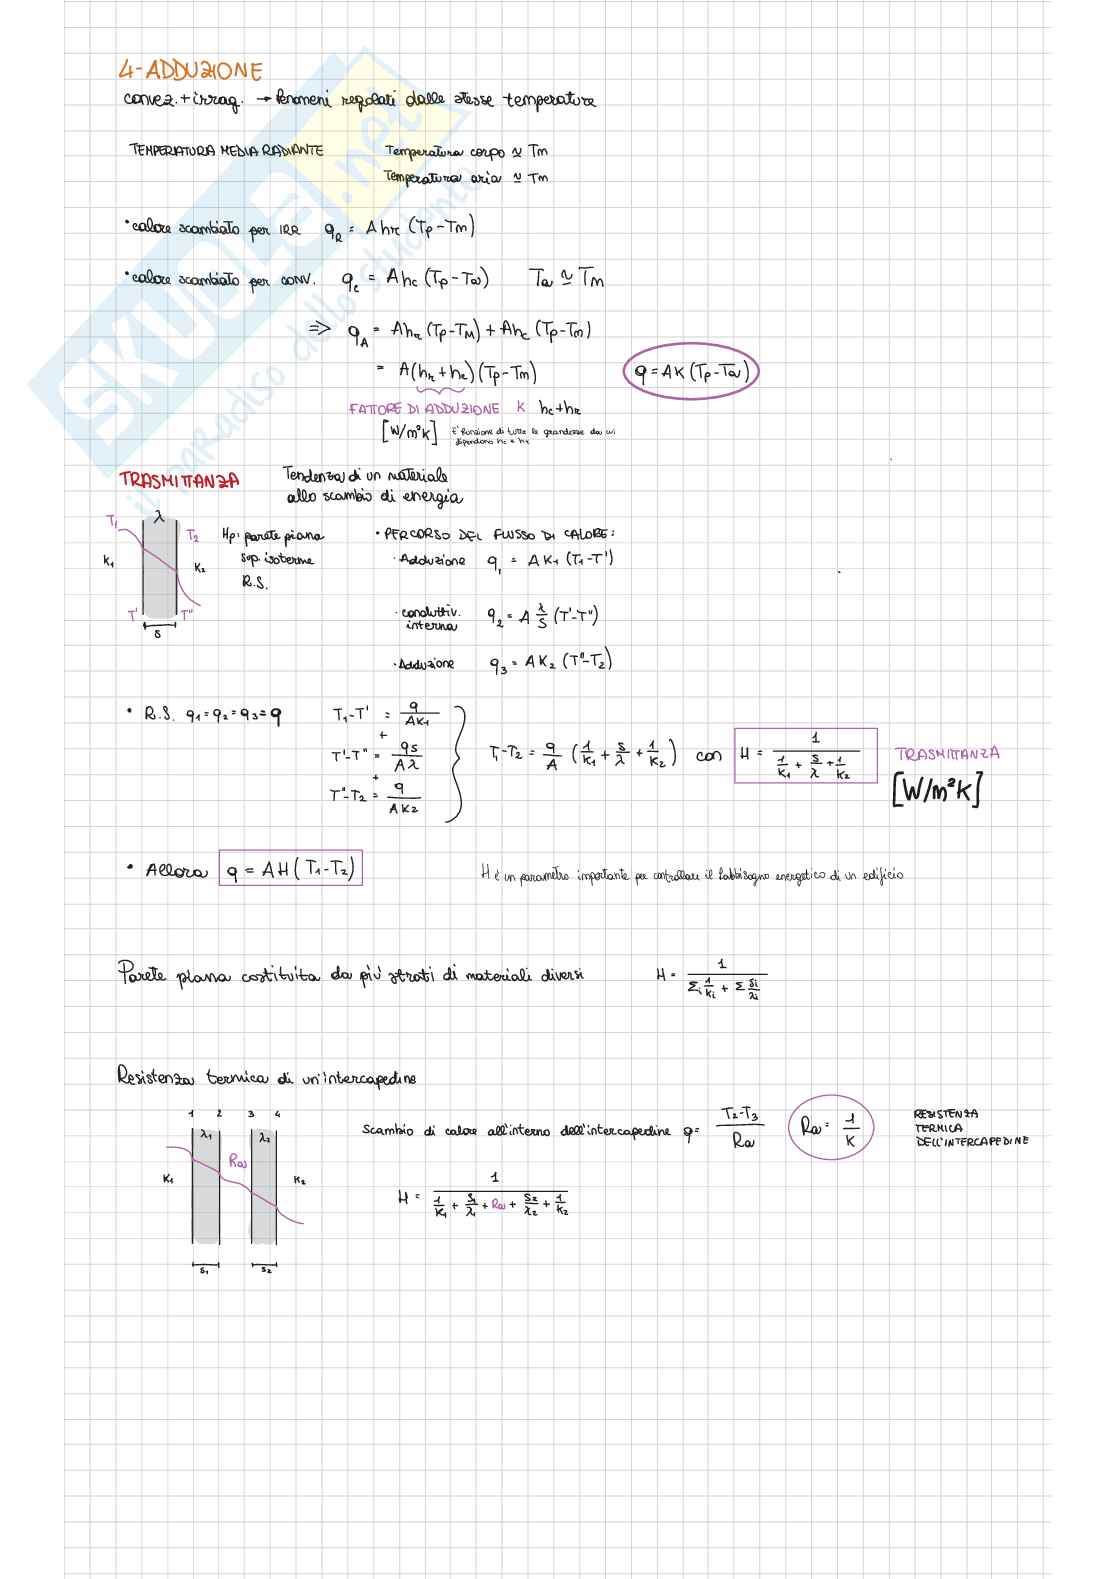 4-ADDUZIONE
convez.+irrag. → fenomeni regolati dalle stesse temperature
TEMPERATURA MEDIA RADIANTE Temperatura corpo ≃ Tm
Temperatura aria ≃ Tm
• calore scambiato per IRR q_R = A h_r (Tp-Tm)
• calore scambiato per conv. q_c = A h_c (Tp-Ta) Ta ≃ Tm
⇒ q_A = A h_r (Tp-T_M) + A h_c (Tp-Tm)
= A (h_r + h_c) (Tp-Tm) q = AK (Tp-Ta)
FATTORE DI ADDUZIONE K h_c+h_r
[W/m²K] È funzione di tutte le grandezze da cui
dipendono h_c e h_r
TRASMITTANZA Tendenza di un materiale
allo scambio di energia
T₁ λ T₂ K₁ K₂ T' T'' s
Hp: parete piana
sup. isoterme
R.S.
• PERCORSO DEL FLUSSO DI CALORE:
· Adduzione q₁ = A K₁ (T₁-T')
· conduttiv. interna q₂ = A λ/s (T'-T'')
· Adduzione q₃ = A K₂ (T''-T₂)
• R.S. q₁=q₂=q₃=q T₁-T' = q/AK₁
+
T'-T'' = qs/Aλ T₁-T₂ = q/A (1/K₁ + s/λ + 1/K₂) con H = 1/(1/K₁ + s/λ + 1/K₂) TRASMITTANZA
+
T''-T₂ = q/AK₂ [W/m²K]
• Allora q = AH (T₁-T₂) H è un parametro importante per controllare il fabbisogno energetico di un edificio
Parete piana costituita da più strati di materiali diversi H = 1/(Σᵢ 1/Kᵢ + Σ sᵢ/λᵢ)
Resistenza termica di un'intercapedine
1 2 3 4
λ₁ λ₂ Ra K₁ K₂ s₁ s₂
Scambio di calore all'interno dell'intercapedine q = T₂-T₃/Ra Ra = 1/K RESISTENZA
TERMICA
DELL'INTERCAPEDINE
H = 1/(1/K₁ + s₁/λ₁ + Ra + s₂/λ₂ + 1/K₂)
SKUOLA.net
il paradiso dello studente